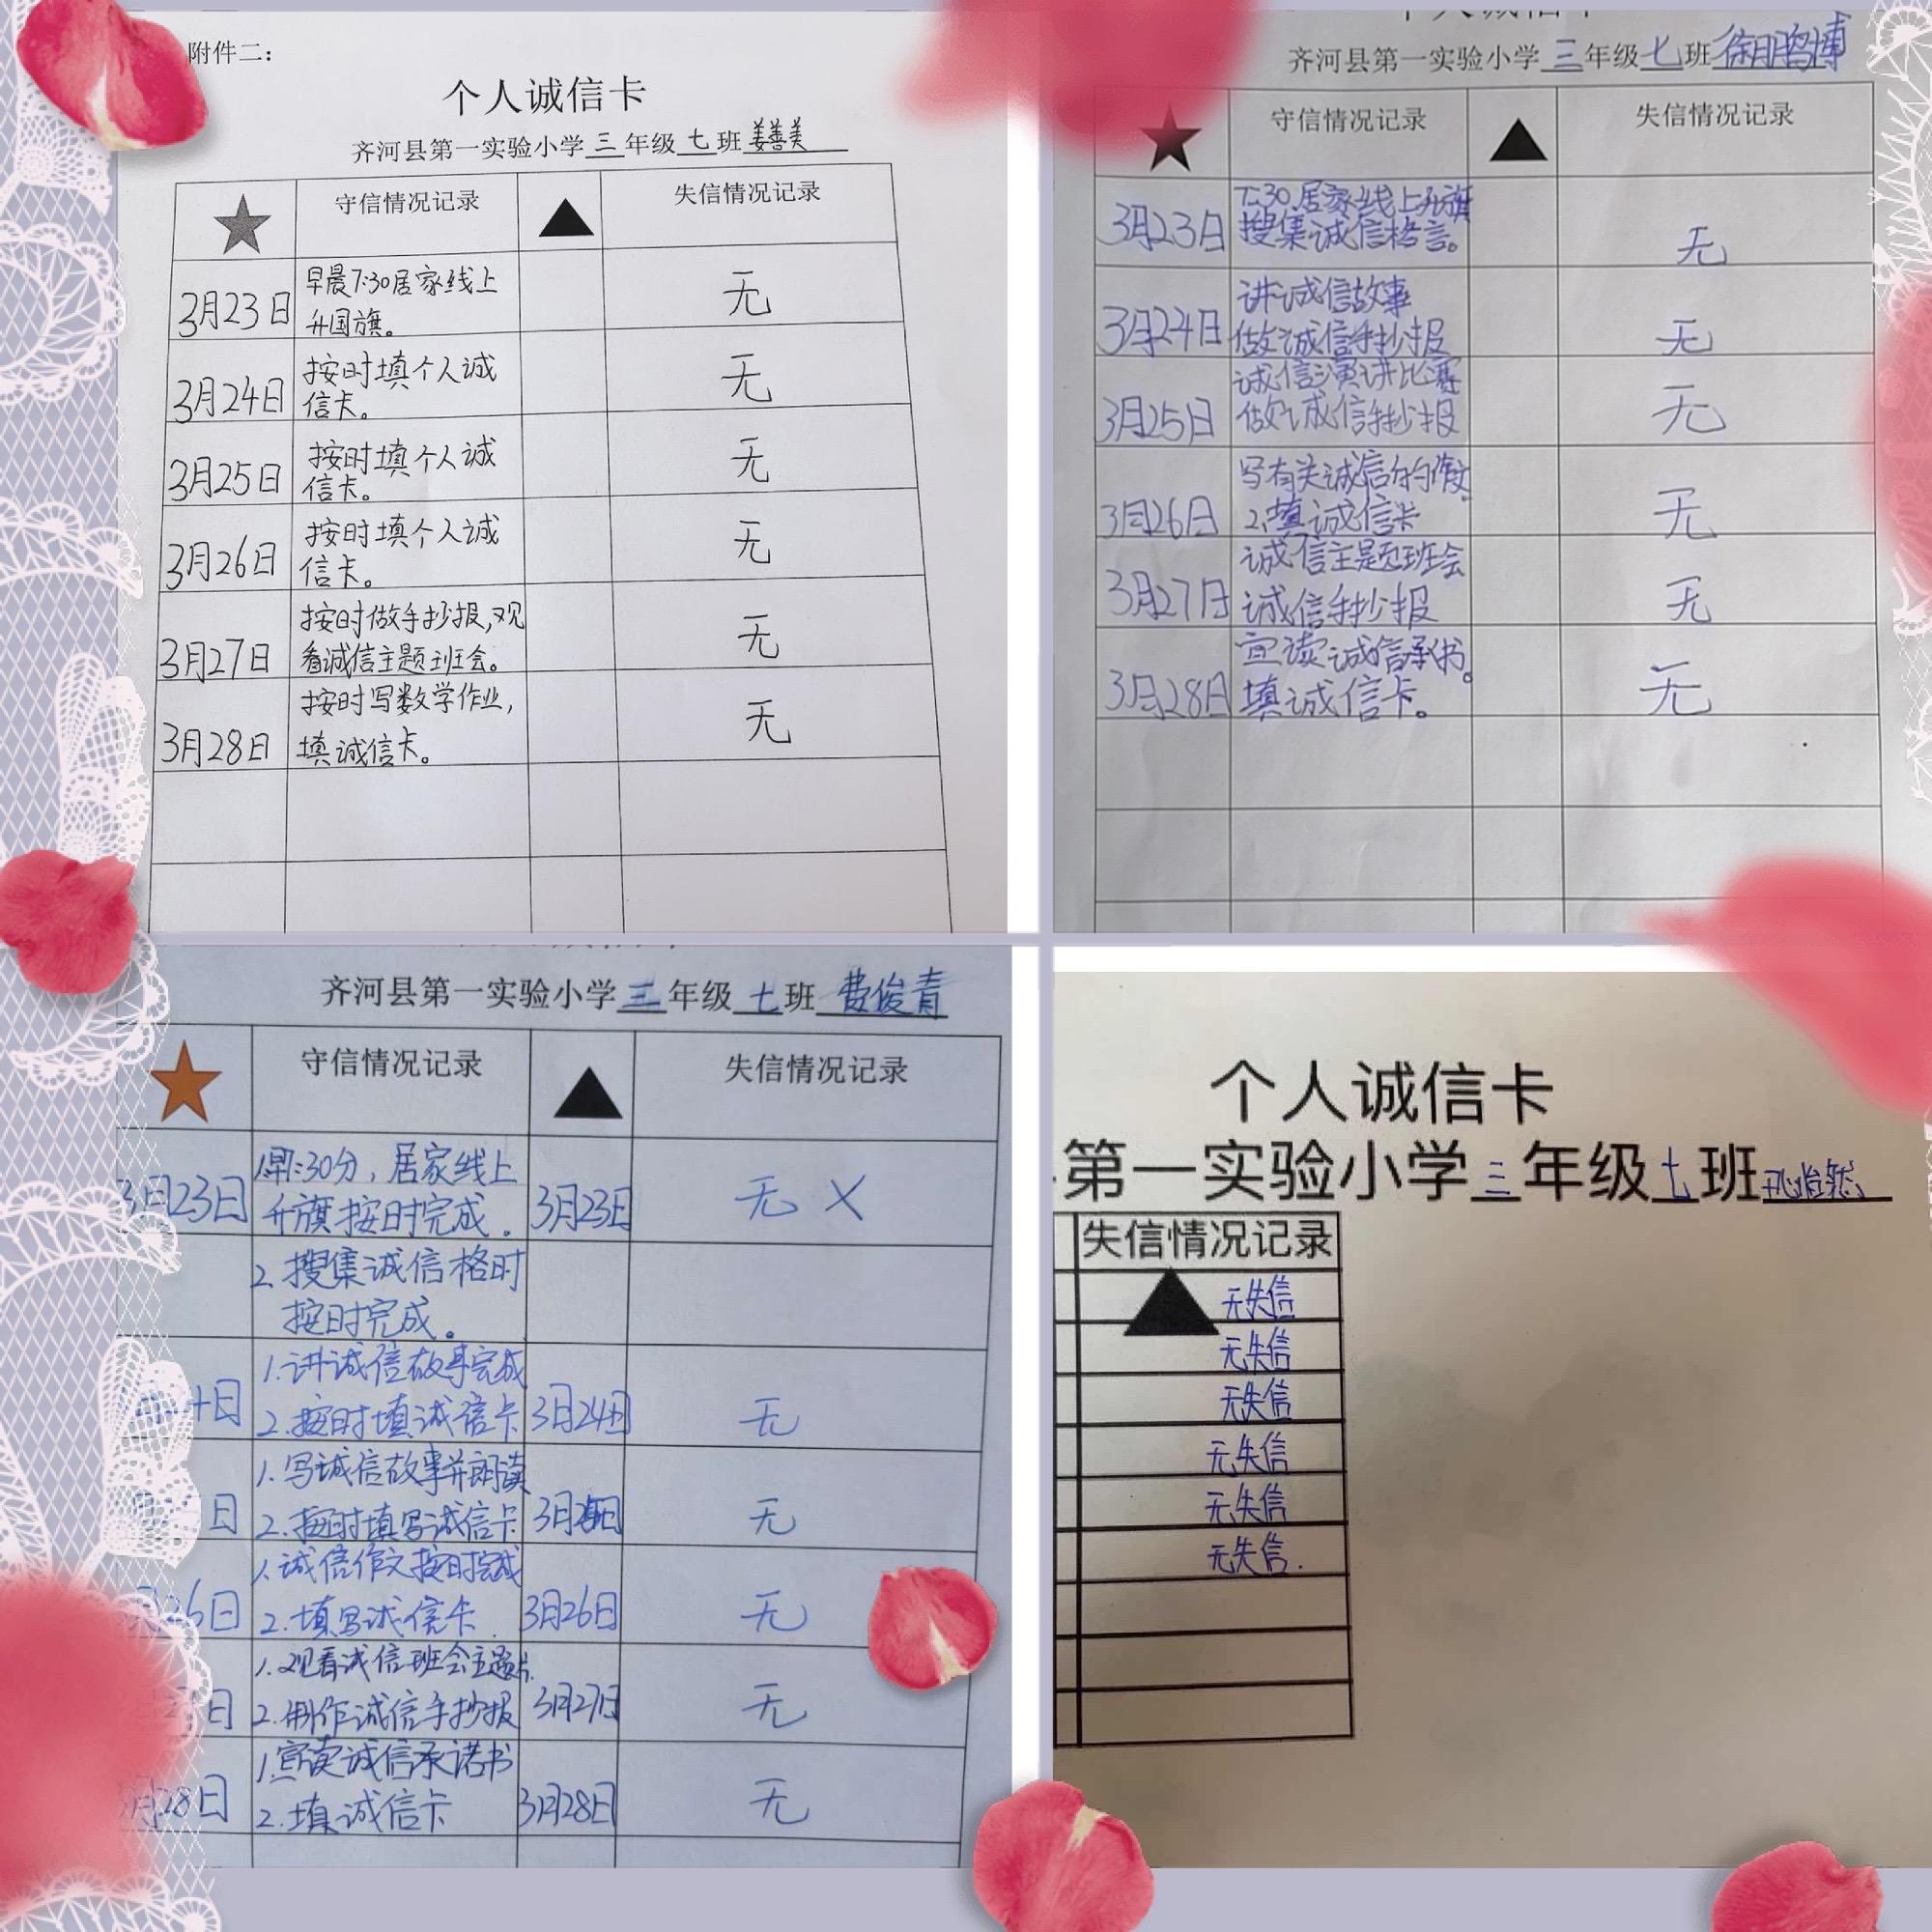 附件二：
个人诚信卡
齐河县第一实验小学三年级七班姜善美
守信情况记录
失信情况记录
3月23日
早晨7:30居家线上
升国旗。
无
3月24日
按时填个人诚
信卡。
无
3月25日
按时填个人诚
信卡。
无
3月26日
按时填个人诚
信卡。
无
3月27日
按时做手抄报,观
看诚信主题班会。
无
3月28日
按时写数学作业,
填诚信卡。
无
齐河县第一实验小学三年级七班
守信情况记录
失信情况记录
3月23日
7:30居家线上升旗
搜集诚信格言。
无
3月24日
讲诚信故事
做诚信手抄报
无
3月25日
诚信演讲比赛
做诚信手抄报
无
3月26日
写有关诚信的作文
2.填诚信卡
无
3月27日
诚信主题班会
诚信手抄报
无
3月28日
宣读诚信承书。
填诚信卡。
无
齐河县第一实验小学三年级七班费俊青
守信情况记录
失信情况记录
3月23日
:30分，居家线上
升旗按时完成.
3月23日
无 X
2.搜集诚信格时
按时完成。
日
1.讲诚信故事完成
2.按时填诚信卡
3月24日
无
日
1.写诚信故事并朗读
2.按时填写诚信卡
无
26日
1.诚信作文按时完成
2.填写诚信卡.
3月26日
无
日
1.观看诚信班会主题
2.制作诚信手抄报
3月27日
无
月28日
1.宣读诚信承诺书
2.填诚信卡
3月28日
无
个人诚信卡
第一实验小学三年级七班
失信情况记录
无失信
无失信
无失信
无失信
无失信
无失信.